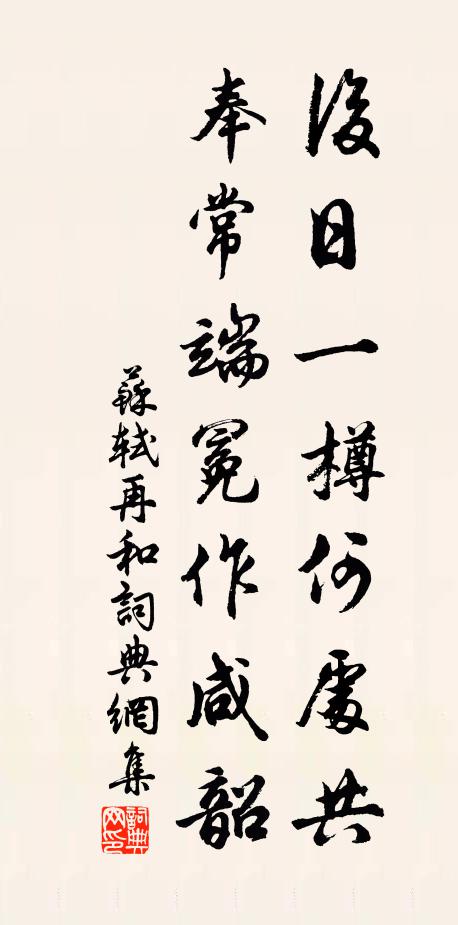 後日一樽何處共
奉常端冕作咸韶
蘇軾再和詞典網集
詞典網印